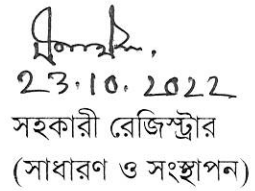 23.10.2022
সহকারী রেজিস্ট্রার
(সাধারণ ও সংস্থাপন)